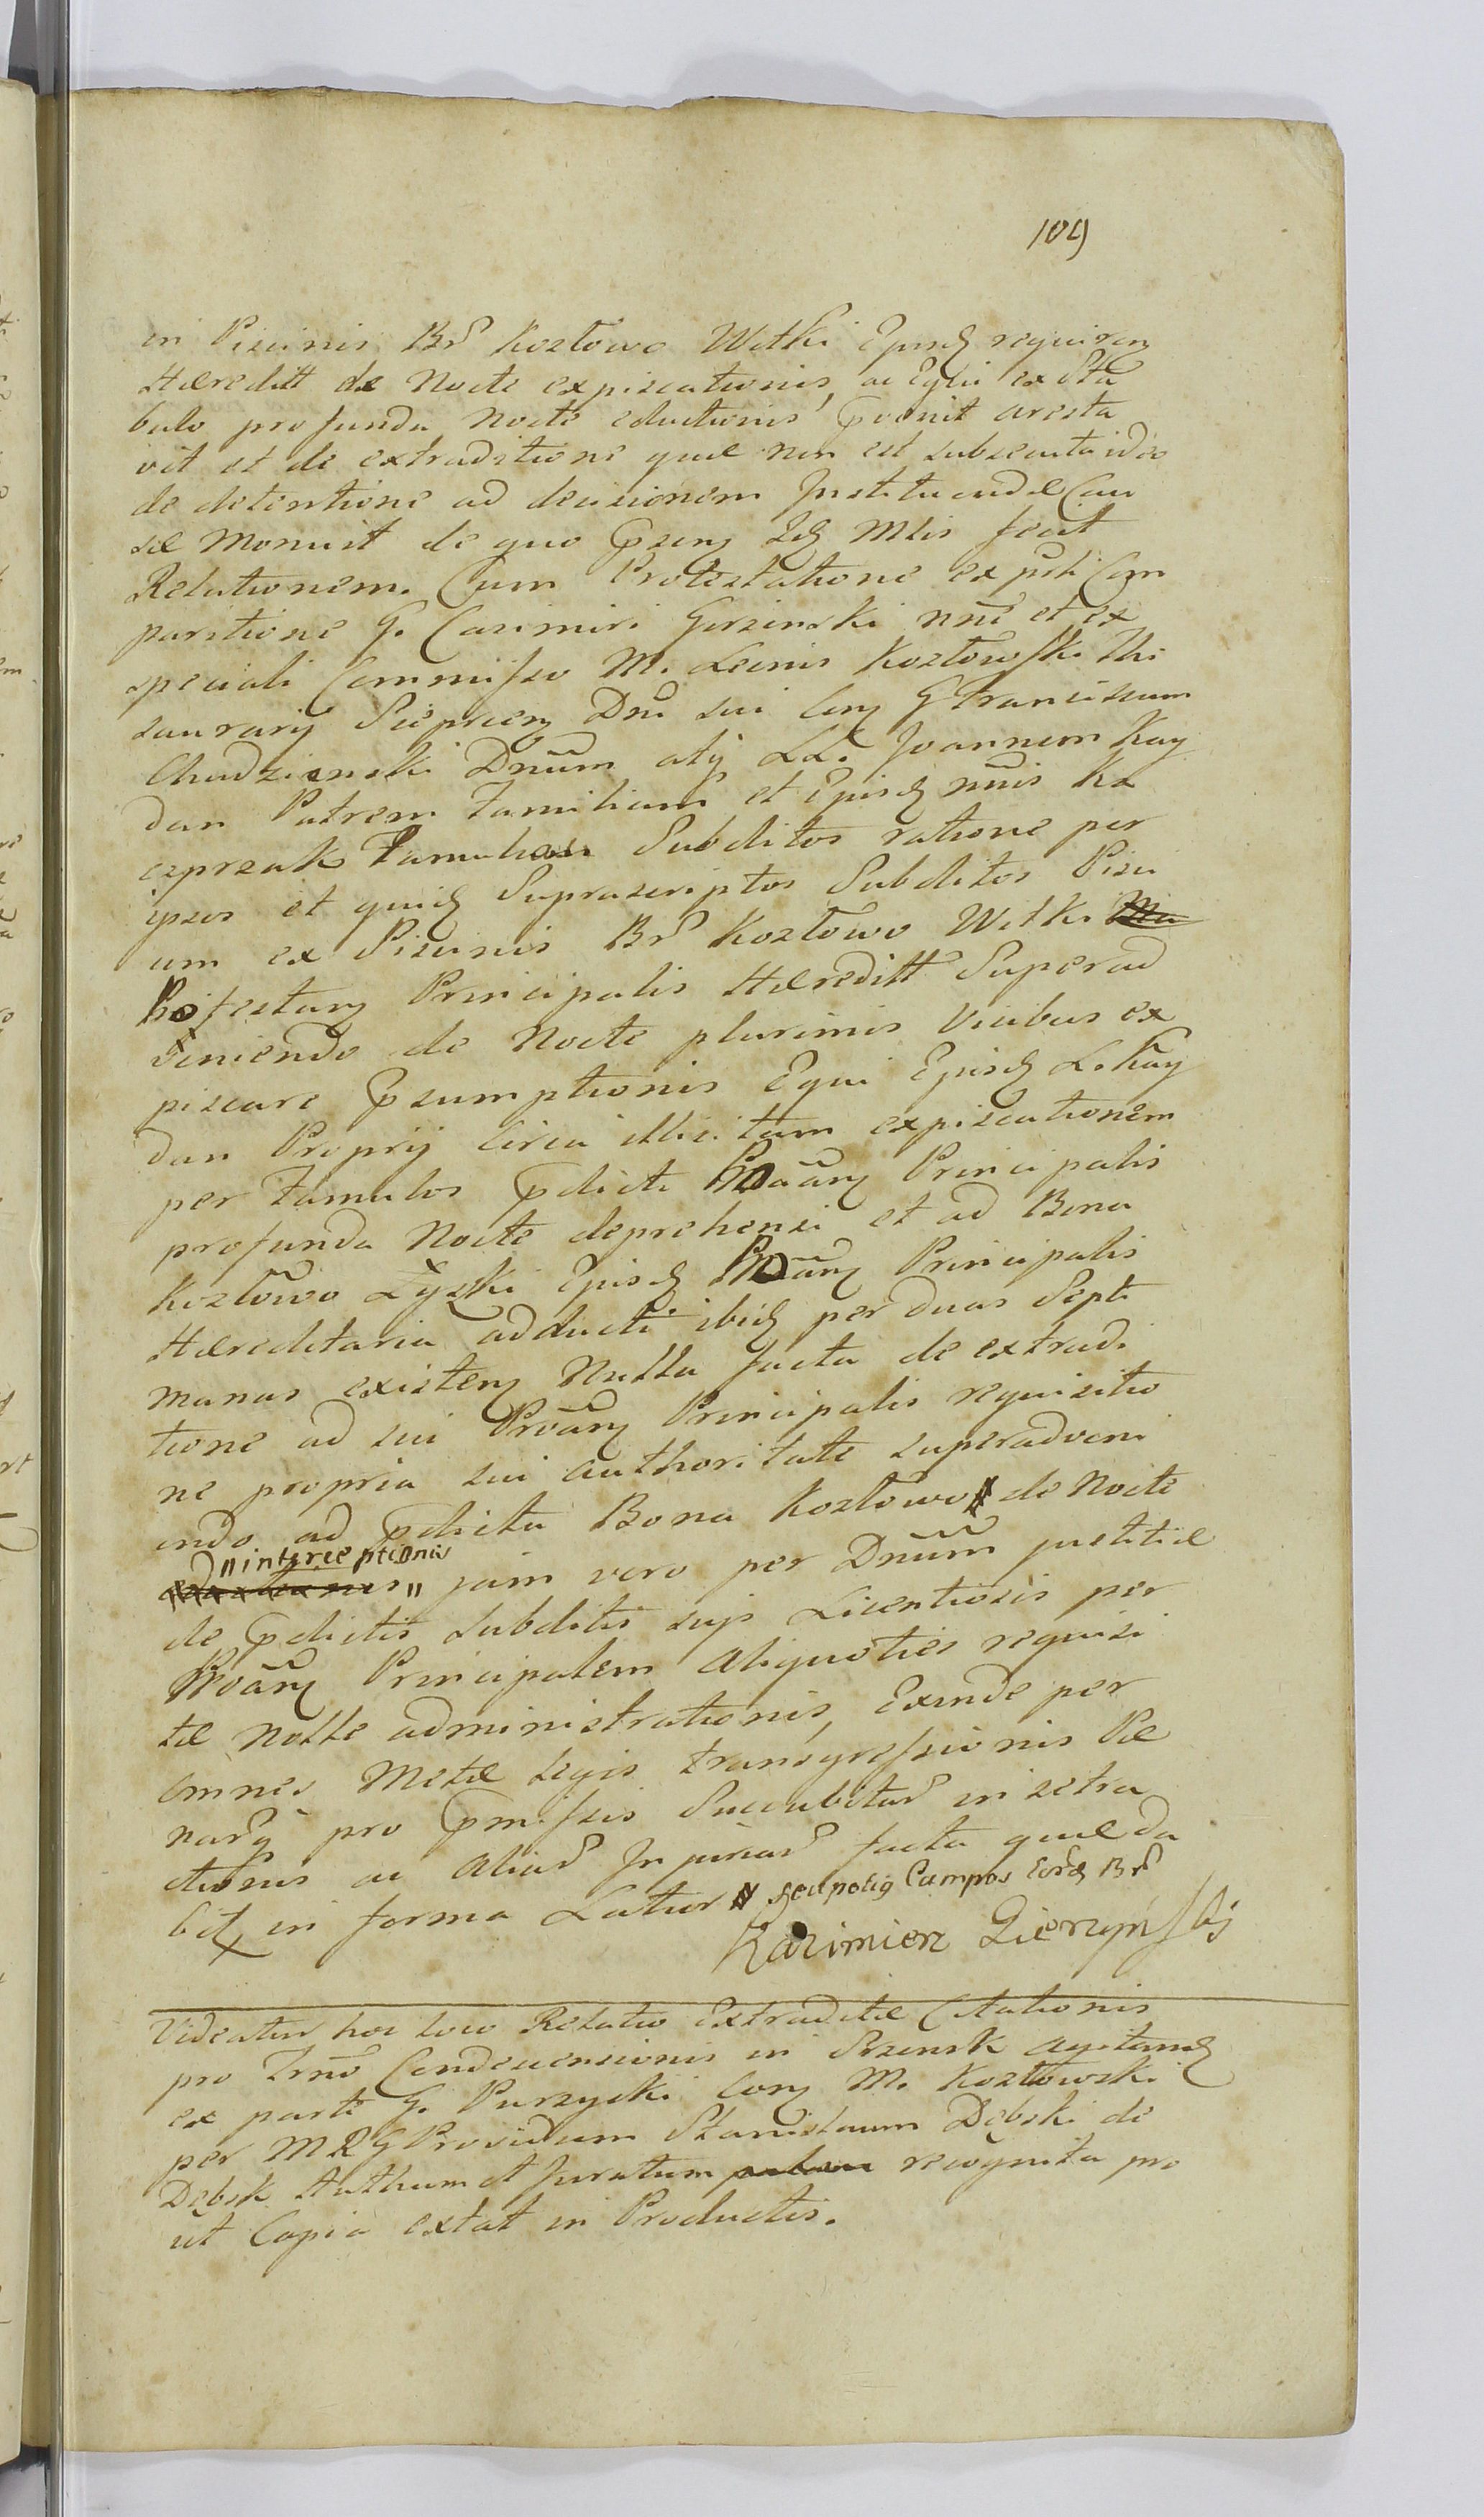 109
in Piscinis Br Kozłowo Witki Ejusd requiren
Hæreditt de Nocte expiscationis, ac Equi ex Sta
bulo profunda Nocte eductionis pœnit aresta
vit et de extraditione quæ non est subsecuta ideo
de detentione ad decisionem Instituendæ Cau
sæ Monuit de quo præsens Idē Mtis fecit
Relationem. Cum Protestatione ex psti Com
paritione G. Casimiri Girzinski nne et ex
speciali Commisso M. Leonis Kozłowski The
saurarij Dni sui con G Franciscum
Chudzienski Dnum atq LL. Joannem Kay
dan Patrem Familiam et Ejusd
czprzak Famulum Subditos ratione per
ipsos et quid Suprascriptos Subditos Pisci
um ex Piscinis Br Kozłowo Witki
festan Principalis Hæreditt Superad
veniendo de Nocte plurimis Vicibus ex
piscari præsumptionis Equi Ejusd L. Kay
dan Proprij circa illicitam expiscationem
per Famulos prædicti Ptoan Principalis
profunda Nocte deprehensi et ad Bona
Kozłowo Łyzki Ejusd Ptoan Principalis
Hæreditaria adducti ibid per duas Septi
manas existen Nulla facta de extradi
tione ad sui Ptoan Principalis requisitio
ne propria sui authoritate superadveni
endo ad prædicta Bona Kozłowo # de Nocte
"interceptionis
" jam vero per Dnum justitiæ
de prædictis Subditis sujs Licentiosis per
Ptoan Principalem aliquoties requisi
tæ Nolle administrationis, Exinde per
omnes Metæ Legis transgressionis Pæ
narq pro præmissis Succubitus in retra
ctionis ac alias Injurias facta quæ da
bit in forma Latior # seu potiq Campos Eord Br
Kazimierz Gierzyńskj
Videatur hoc loco Relatio Extraditæ Citationis
pro Trno Condescensionis in Szrensk agitand
ex parte G. Purzycki con M. Kozłowski
per M R G Providum Stanislaum Dębski de
Dębsk Authum et Juratum recognita pro
ut Copia extat in Productis.